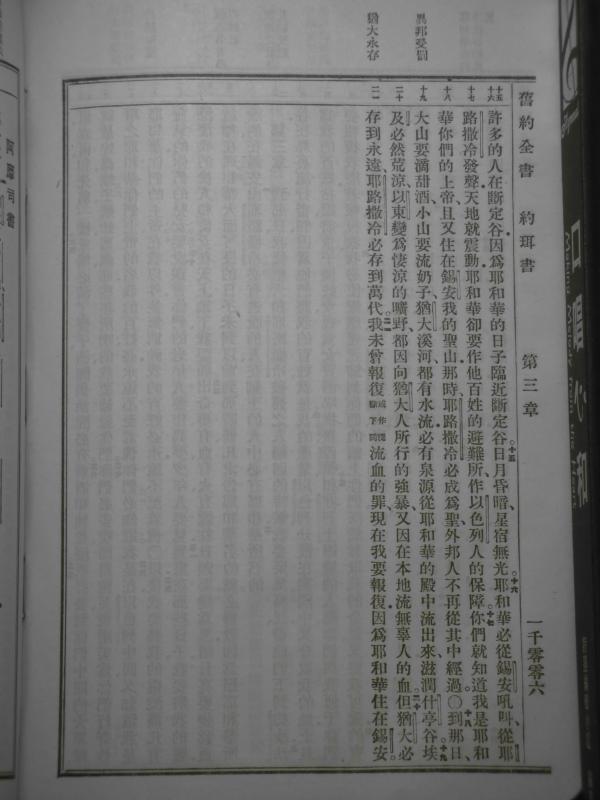 舊約全書 約珥書 第三章 一千零零六
異邦受罰
猶大永存
十五 十六 十七 十八 十九 二十 二一
許多的人在斷定谷因爲耶和華的日子臨近斷定谷。十五日月昏暗、星宿無光。十六耶和華必從錫安吼叫、從耶
路撒冷發聲、天地就震動、耶和華卻要作他百姓的避難所、作以色列人的保障。十七你們就知道我是耶和
華你們的上帝、且又住在錫安我的聖山、那時、耶路撒冷必成爲聖、外邦人不再從其中經過。○十八到那日、
大山要滴甜酒、小山要流奶子、猶大溪河、都有水流、必有泉源從耶和華的殿中流出來、滋潤什亭谷。十九埃
及必然荒涼、以東變爲悽涼的曠野、都因向猶大人所行的強暴、又因在本地流無辜人的血。二十但猶大必
存到永遠、耶路撒冷必存到萬代。二一我未曾報復流血的罪、現在我要報復、因爲耶和華住在錫安。
阿摩司書
口唱心和